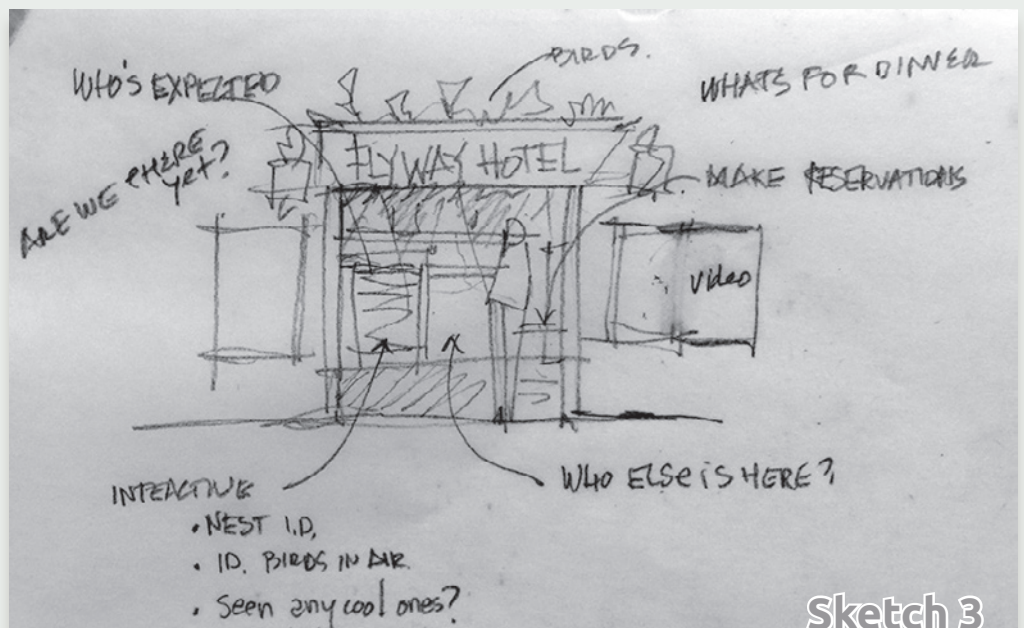 BIRDS.
WHO'S EXPECTED
WHATS FOR DINNER
ARE WE THERE
YET?
FLYWAY HOTEL
MAKE RESERVATIONS
Video
INTEACTIVE
• NEST I.D.
• ID. BIRDS IN AIR.
• Seen any cool ones?
WHO ELSE iS HERE?
Sketch 3